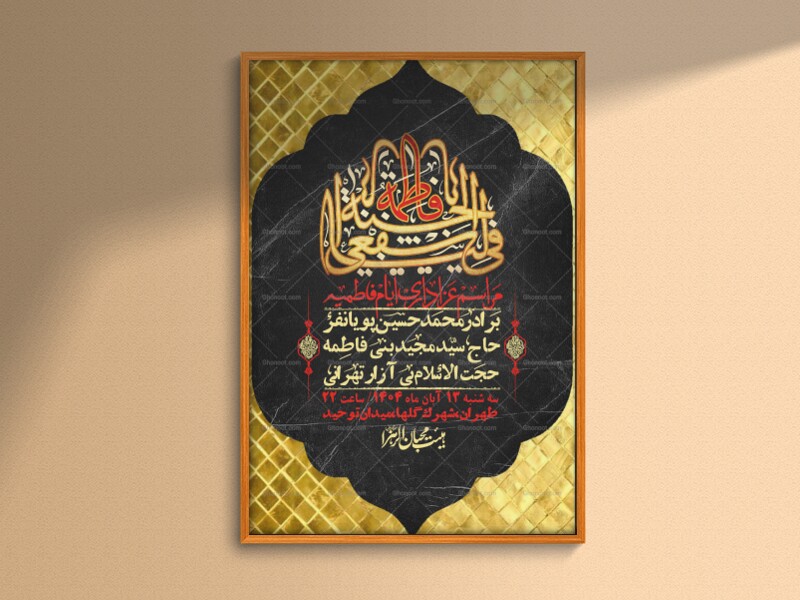 یا فاطمة اشفعی لی فی الجنة
مراسم عزاداری ایام فاطمیه
برادر محمدحسین پویانفر
حاج سید مجید بنی فاطمه
حجت الاسلام بی آزار تهرانی
سه شنبه ۱۳ آبان ماه ۱۴۰۴ ساعت ۲۲
طهران، شهرک گلها، میدان توحید
هیئت محبان الزهرا